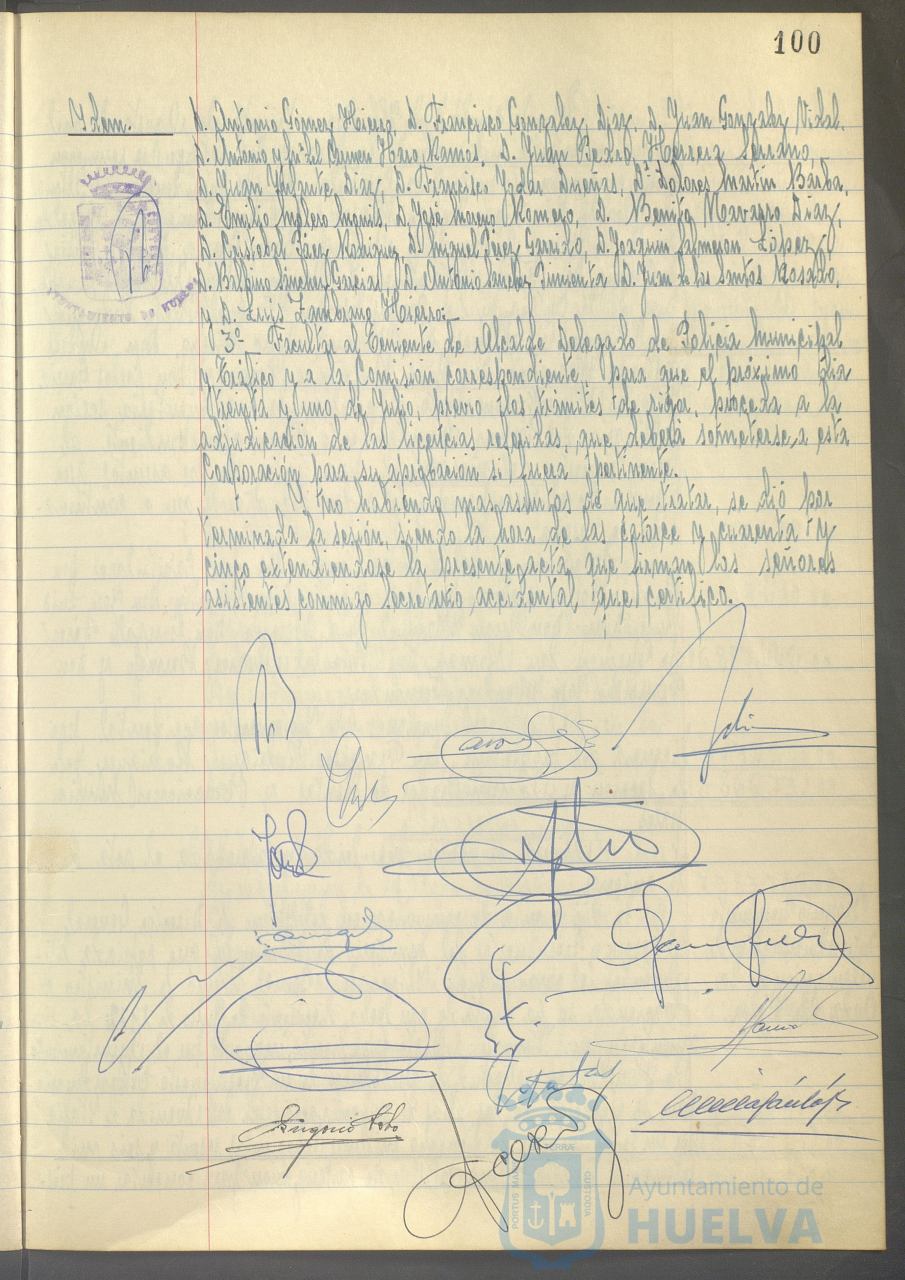 100
Idem.
D. Antonio Gómez Hierro, D. Francisco González Díaz, D. Juan González Vidal,
D. Antonio y Mª del Carmen Haro Ramos, D. Juan Pedro Herrera Serrano,
D. Juan Infante Díaz, D. Francisco Jodar Dueñas, Dª Dolores Martín Barba,
D. Emilio Molero, D. José Moreno Romero, D. Benito Navarro Díaz,
D. Cristobal Páez Rodríguez, D. Miguel Pérez Garrido, D. Joaquín Salmeron López,
D. Balbino Sánchez Garcías, D. Antonio Sánchez Pimienta, D. Juan de los Santos Rosado,
y D. Luis Zambrano Hierro.-
3º Facultar al Teniente de Alcalde Delegado de Policía Municipal
y Tráfico y a la Comisión correspondiente, para que el próximo día
treinta y uno de Julio, previo los trámites de rigor, proceda a la
adjudicación de las licencias referidas, que deberá someterse a esta
Corporación para su aprobación si fuera pertinente.
Y no habiendo mas asuntos de que tratar, se dió por
terminada la sesión, siendo la hora de las catorce y cuarenta y
cinco extendiendose la presente acta, que firman los señores
asistentes conmigo Secretario accidental, que certifico.
AYUNTAMIENTO DE HUELVA
Eugenio
PORTUS MARIS ET TERRAE CUSTODIA
Ayuntamiento de
HUELVA